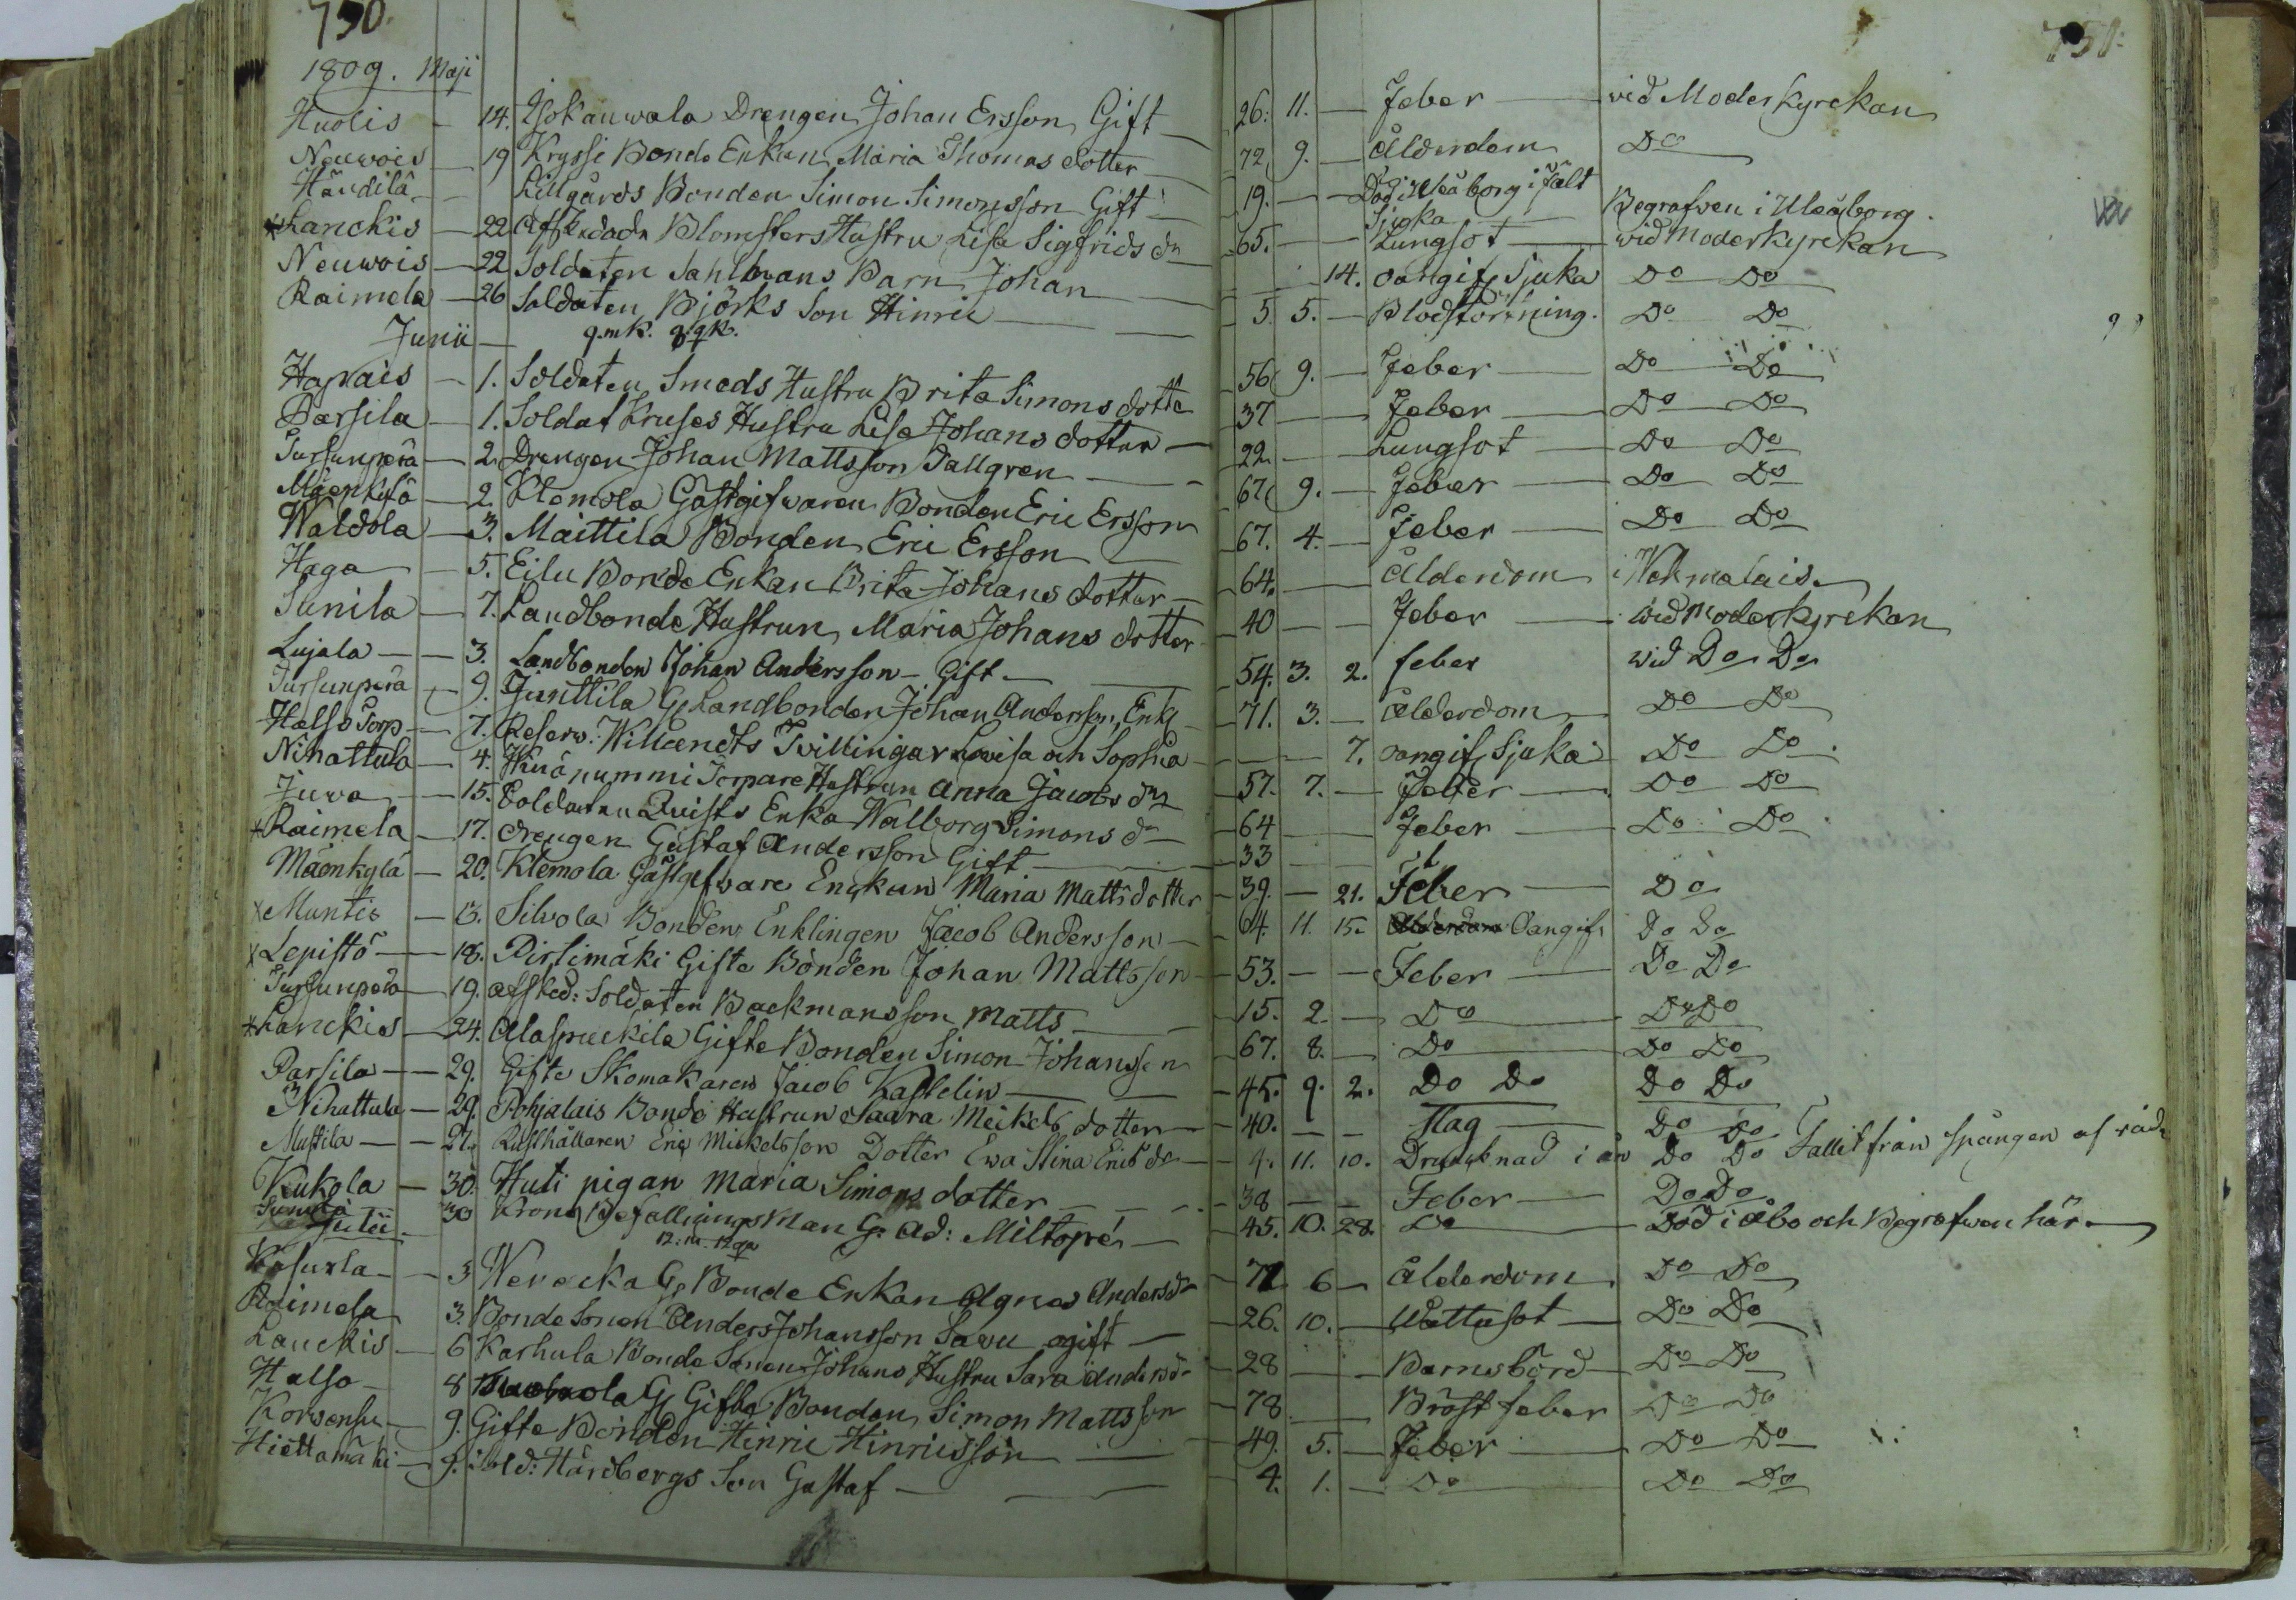 730.
751.
1809. Maji
Huolis 14. Isokauwala Drengen Johan Ersson Gift 26. 11. Feber wid Moderkyrckan
Neuwois 19 Kryssi Bonde Enkan Maria Thomas dotter 72 9. Ålderdom Do
Händilä Lillgårds Bonden Simon Simonsson Gift 19. Död i Uleåborg i fält Sjuka Begrafwen i Uleåborg.
Lanckis 22 Afskedade Blomsters Hustru Lisa Sigfrids dr 65. Lungsot wid Moderkyrckan
Neuwois 22 Soldaten Sahlmans Barn Johan 14. oangif. Sjuka Do Do
Raimela 26 Soldaten Björks Son Hinric 5 5. Blodstörtning. Do Do
Junii 9.mk. 9.qk.
Hapais 1. Soldaten Smeds Hustru Brita Simons dotte 56 9. Feber Do Do
Parsila 1. Soldat Kruses Hustru Lisa Johans dotter 37 Feber Do Do
Tursunperä 2. Drengen Johan Mattsson Tallgren 22 Lungsot Do Do
Mäenkylä 2. Klemola Gästgifwaren Bonden Eric Ersson 67 9. Feber Do Do
Waldola 3. Maittila Bonden Eric Ersson 67. 4. Feber Do Do
Haga 5. Eilu Bonde Enkan Brita Johans dotter 64. Ålderdom i Nokmalais
Sunila 7. Landbonde Hustrun Maria Johans dotter 40 Feber wid Moderkyrckan
Lujala 3. Landbonden Johan Andersson Gift 54. 3. 2. feber wid Do Do
Tursunperä 9. Junttila G. Landbonden Johan Andersson, Enkl 71. 3. Ålderdom Do Do
Halso Torp 7. Reserv. Willandts Tvillingar Lovisa och Sophia 7. oangif. Sjuka Do Do
Nihattula 4. nummi Torpare Hustrun Anna Jacobs dr 57. 7. Feber Do Do
Juva 15. Soldaten Quists Enka Walborg Simons dr 64 Feber Do Do
Raimela 17. drengen Gustaf Andersson Gift 33
Mäenkylä 20. Klemola Gästgifvare Enckan Maria Matts dotter 39. 21. Feber Do
Muntis 13. Silvola Bonden Enklingen Jacob Andersson 64. 11. 15. Ålderdom Oangif. Do Do
Lepistö 18. Pirlimäki Gifte Bonden Johan Mattsson 53. Feber Do Do
Tursunperä 19. afsked: Soldaten Backmans son Matts 15. 2. Do Do Do
Lanckis 24. Alaspruckila Gifte Bonden Simon Johansson 67. 8. Do Do Do
Parsila 29. Gifte Skomakaren Jacob Kastelin 45. 9. 2. Do Do Do Do
Nihattula 29. Pohjalais Bonde Hustrun Saara Mickels dotter 40. Slag Do Do
Mustila 27. Rusthållaren Eric Mickelsson Dotter Ewa Stina Erics dr 4. 11. 10. Druncknad i ån Do Do Fallit från spången af råd.
Kukola 30. Huti pigan Maria Simons dotter 38 Feber Do Do
Sunila 30 Krono Befallningsman G: Ad: Miltopé 45. 10. 28. Do Död i Åbo och Begrafwen här.
Julii. 12:m. 12qp
5 Wenecka G. Bonde Enkan Agnes Anders dr 71 6 Ålderdom Do Do
Raimela 3. Bonde Sonen Anders Johansson Savu ogift 26. 10. Wattusot Do Do
Lanckis 6 Karhula Bonde Sonen Johans Hustru Sara Anders dr 28 Barnsbörd Do Do
Halso 8 G. Gifte Bonden Simon Mattsson 78 Bröstfeber Do Do
Korvensu 9. Gifte Bonden Hinric Hinricsson 49. 5. Feber Do Do
Hiettamäki 9. Sold: Hårdbergs Son Gustaf 4. 1. Do Do Do